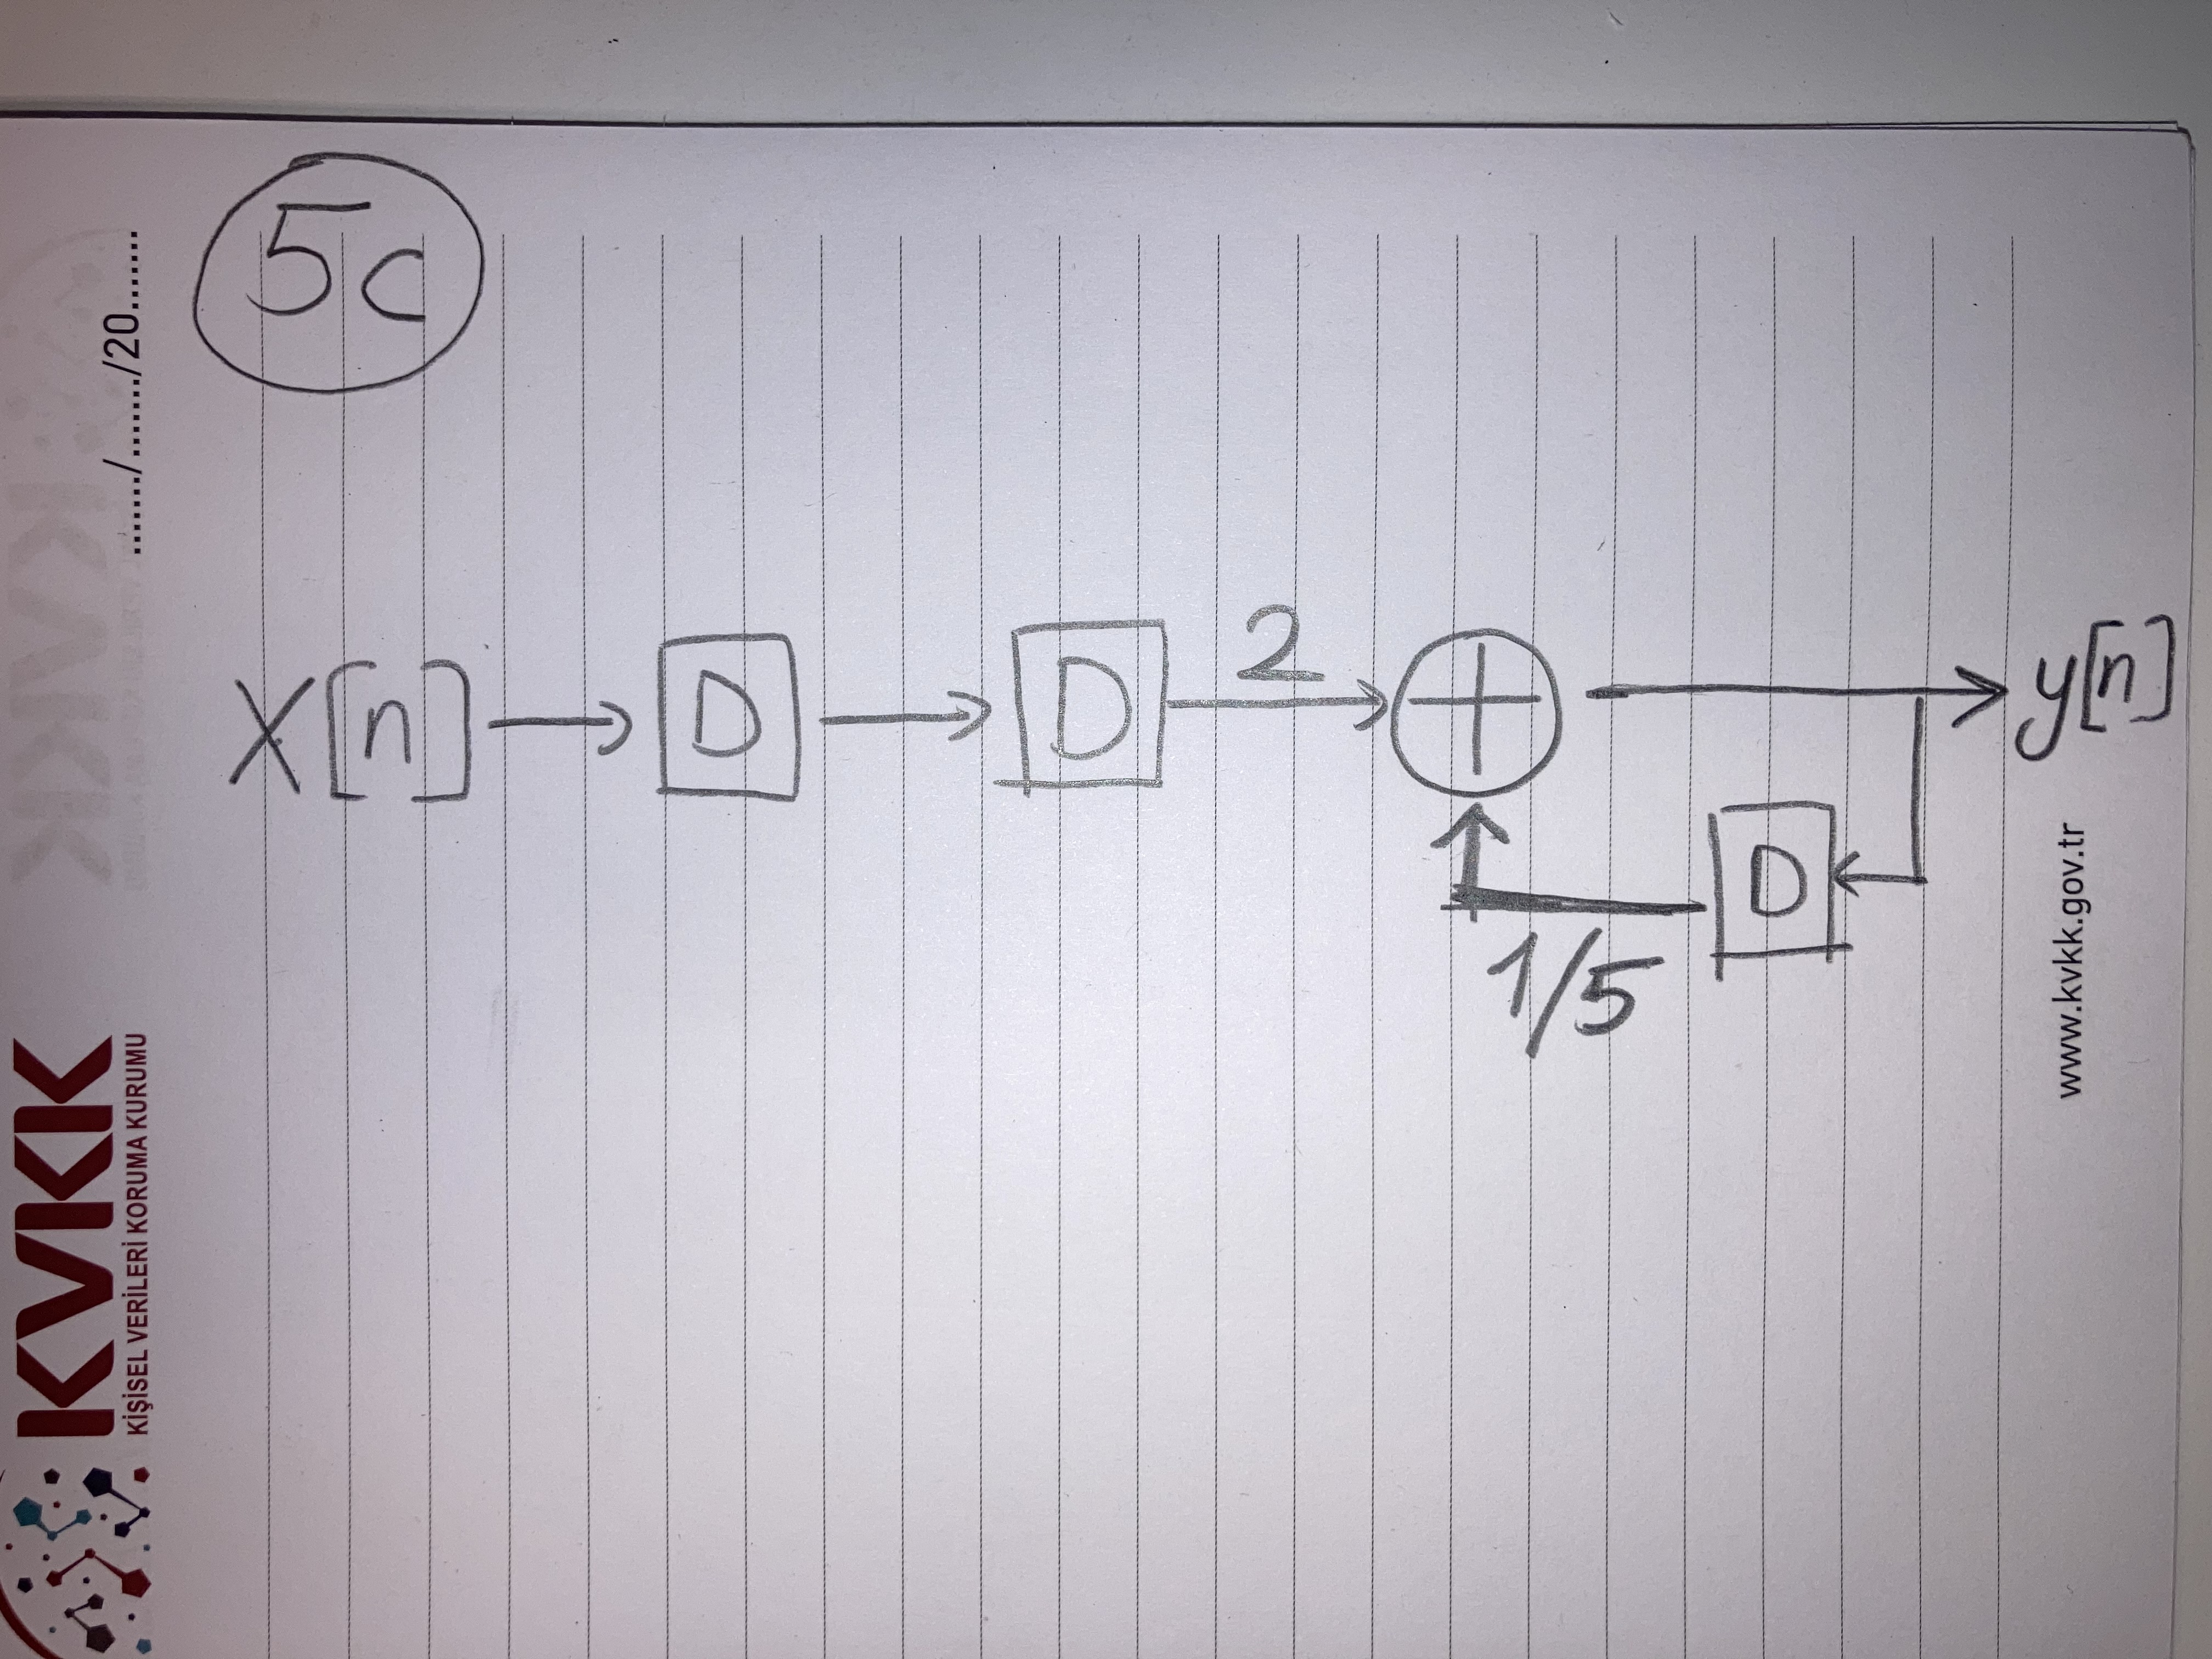 KVKK
KİŞİSEL VERİLERİ KORUMA KURUMU
......./......./20.......
5c
x[n]
D
D
2
1/5
D
y[n]
www.kvkk.gov.tr